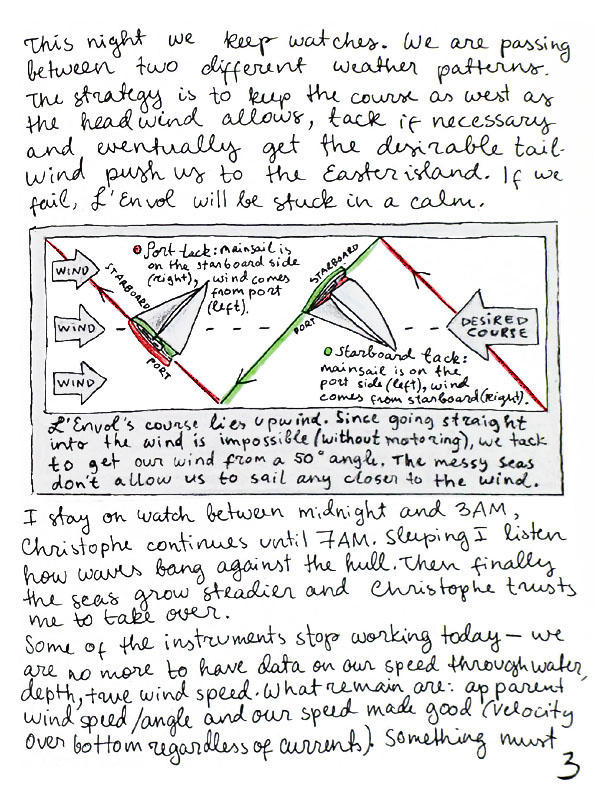 This night we keep watches. We are passing
between two different weather patterns.
The strategy is to keep the course as west as
the headwind allows, tack if necessary
and eventually get the desirable tail-
wind push us to the Easter island. If we
fail, L'Envol will be stuck in a calm.
WIND
WIND
WIND
STARBOARD
PORT
Port tack: mainsail is
on the starboard side
(right), wind comes
from port
(left).
STARBOARD
PORT
DESIRED
COURSE
Starboard tack:
mainsail is on the
port side (left), wind
comes from starboard (right).
L'Envol's course lies upwind. Since going straight
into the wind is impossible (without motoring), we tack
to get our wind from a 50° angle. The messy seas
don't allow us to sail any closer to the wind.
I stay on watch between midnight and 3AM,
Christophe continues until 7AM. Sleeping I listen
how waves bang against the hull. Then finally
the seas grow steadier and Christophe trusts
me to take over.
Some of the instruments stop working today – we
are no more to have data on our speed through water,
depth, true wind speed. What remain are: apparent
wind speed/angle and our speed made good (velocity
over bottom regardless of currents). Something must
3